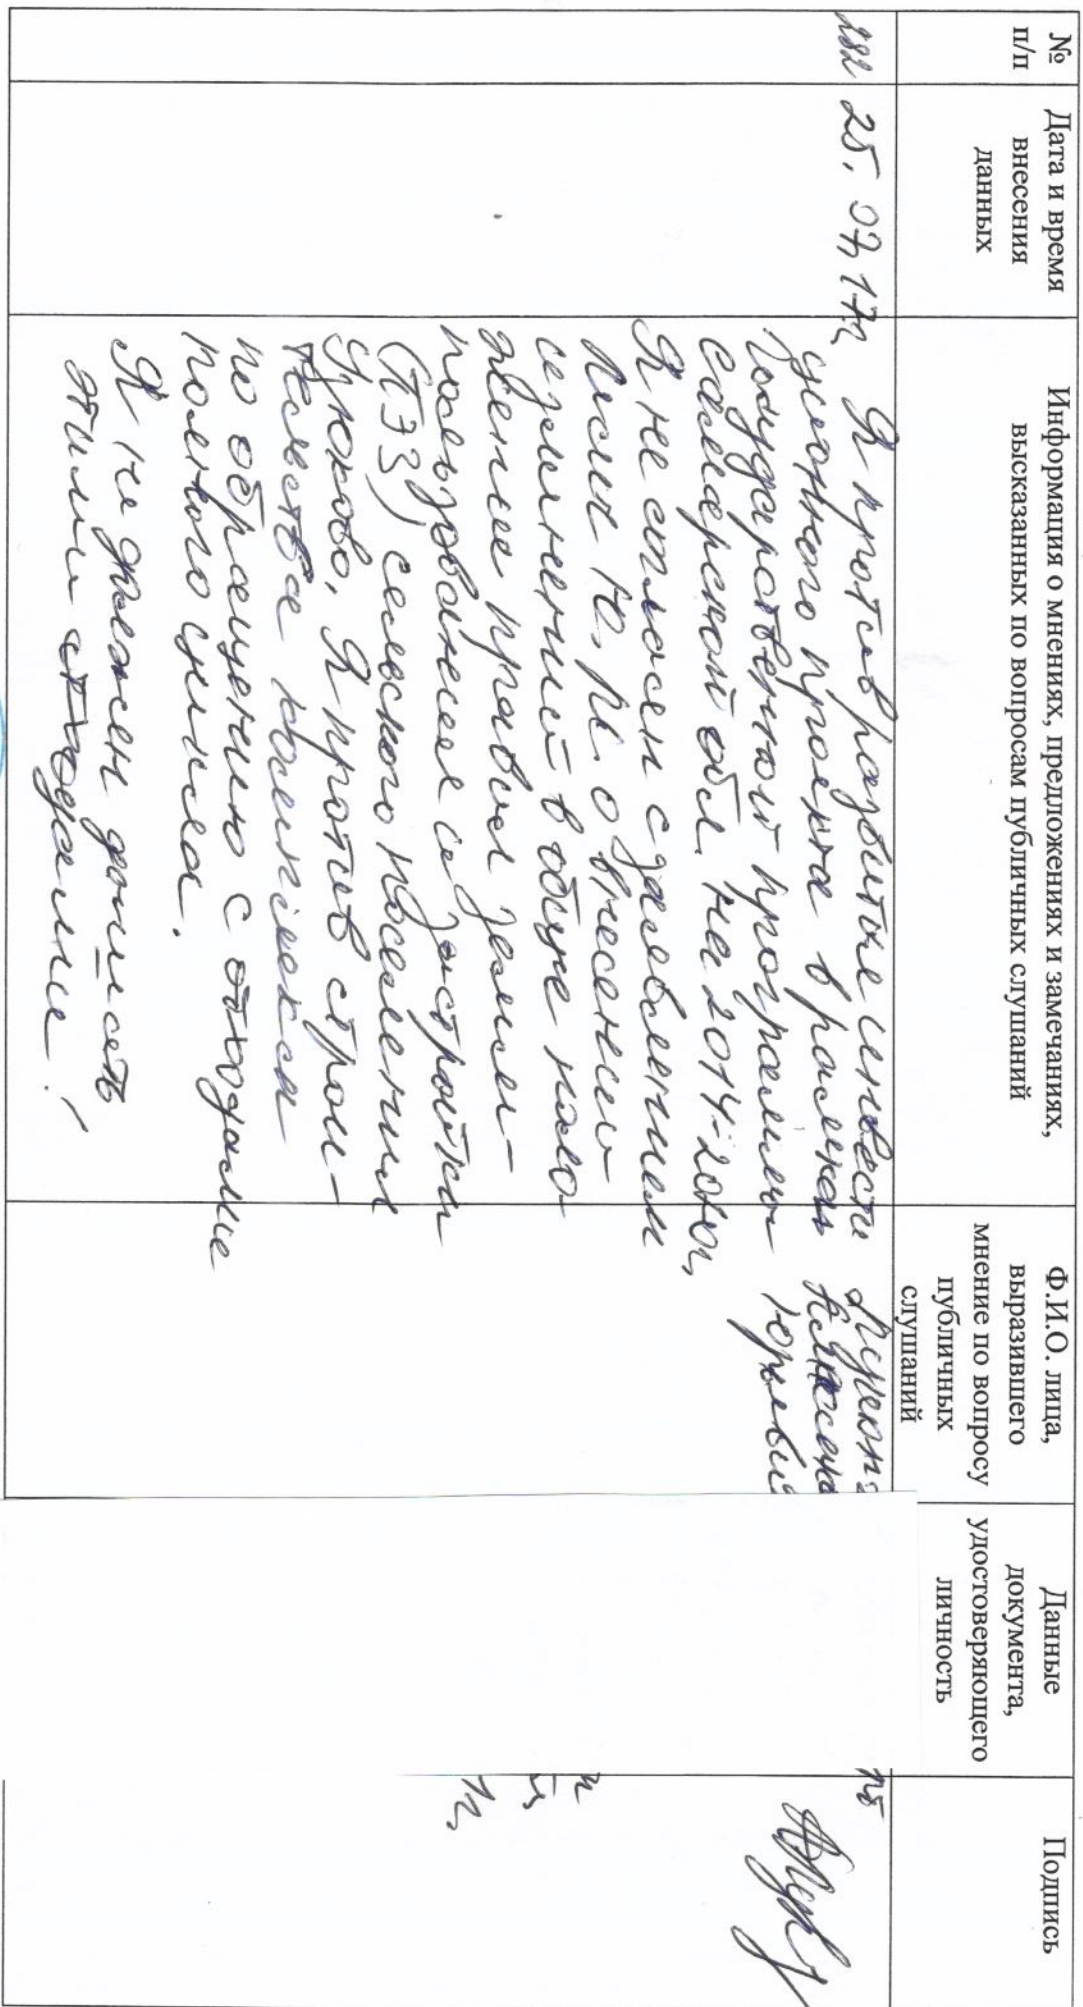 №
п/п
Дата и время
внесения
данных
Информация о мнениях, предложениях и замечаниях,
высказанных по вопросам публичных слушаний
Ф.И.О. лица,
выразившего
мнение по вопросу
публичных
слушаний
Данные
документа,
удостоверяющего
личность
Подпись
282
25.07.17г
Я против развитие инвести
ционного проекта в рамках
Государственной программы
Самарской обл. на 2014-20
Я не согласен с заявлением
Ю. М. о внесении
изменений в общие поло-
жение правил земле-
пользования и застройки
(ПЗЗ) сельского поселения
Я против строи-
тельства комплекса
по обращению с отходами
полного цикла.
Я не должен дышать
этими отходами!
Юрьевич